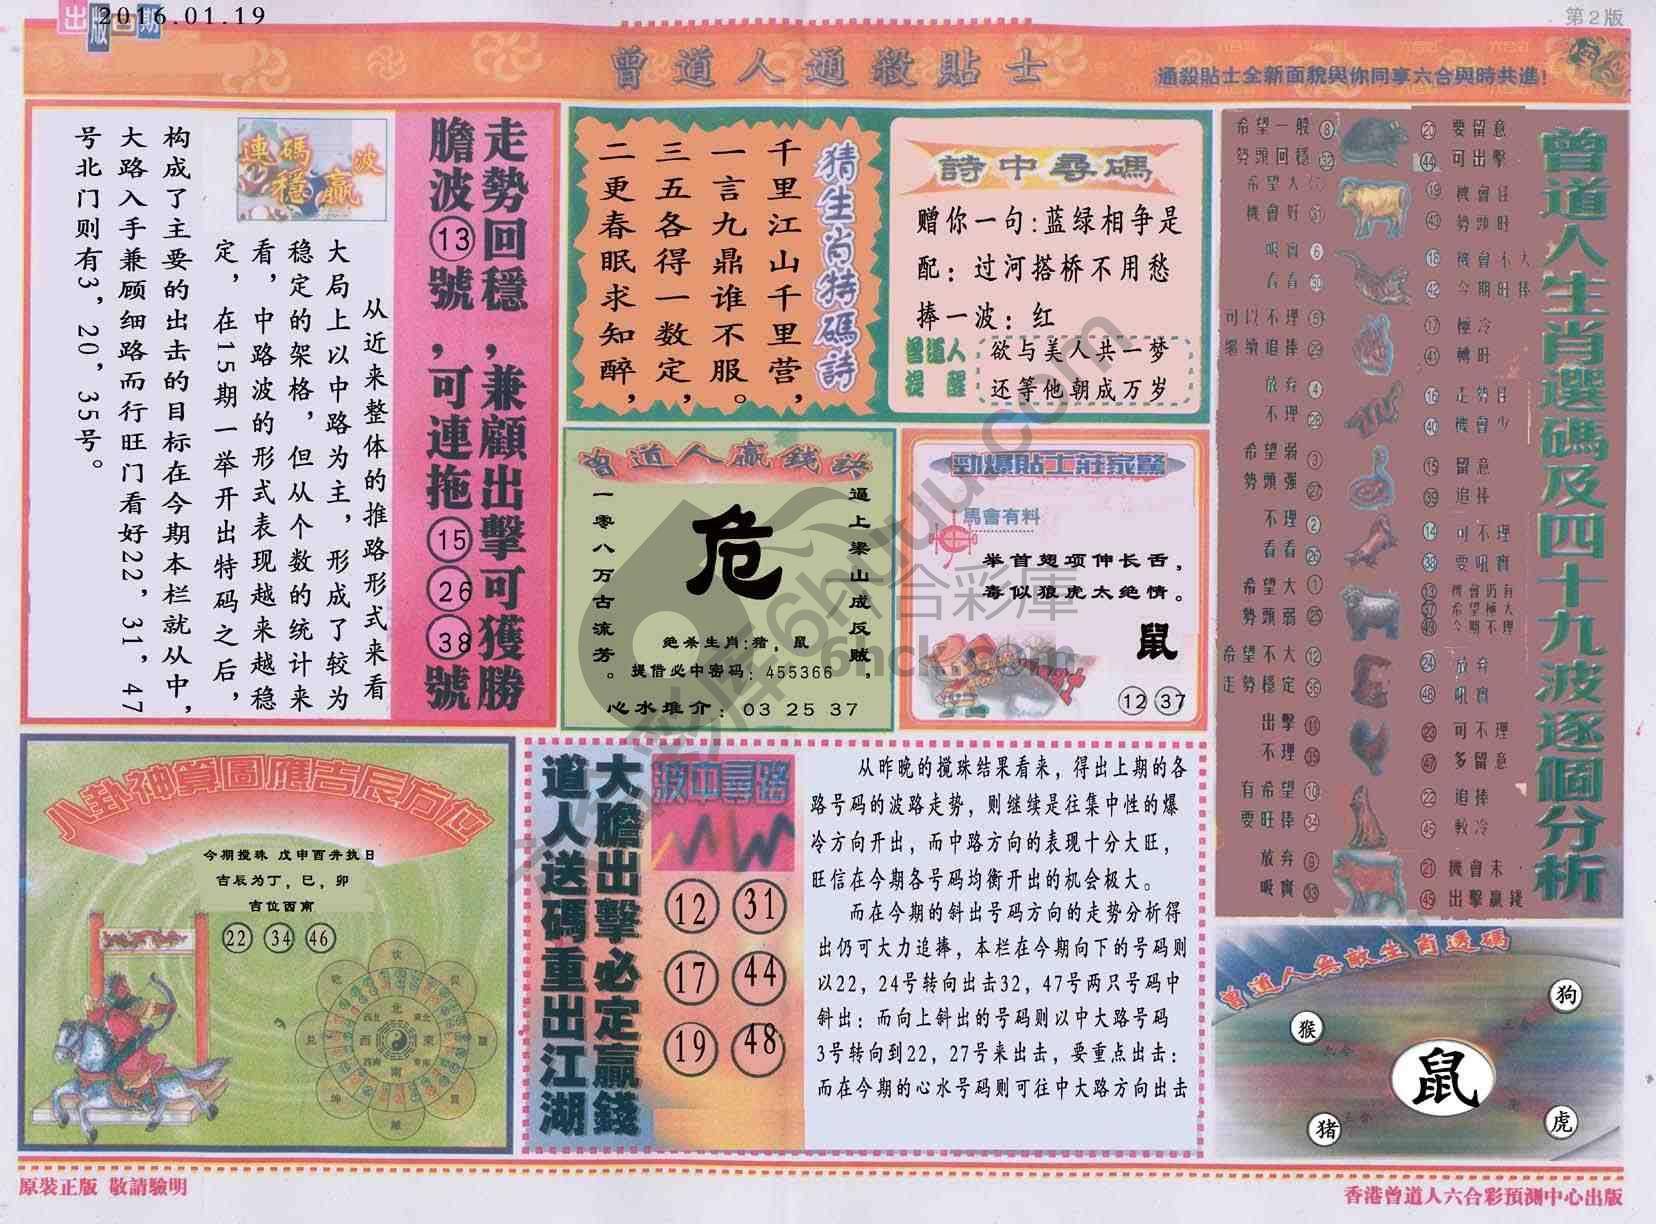 出版日期
2016.01.19
第2版
曾道人通殺貼士
通殺貼士全新面貌與你同享六合與時共進!
走勢回穩,兼顧出擊可獲勝
膽波⑬號,可連拖⑮㉖㊳號
連碼
穩贏
波
从近来整体的推路形式来看
大局上以中路为主,形成了较为
稳定的架格,但从个数的统计来
看,中路波的形式表现越来越稳
定,在15期一举开出特码之后,
构成了主要的出击的目标在今期本栏就从中,
大路入手兼顾细路而行旺门看好22,31,47
号北门则有3,20,35号。
猜生肖特碼詩
千里江山千里营,
一言九鼎谁不服。
三五各得一数定,
二更春眠求知醉,
詩中尋碼
赠你一句:蓝绿相争是
配:过河搭桥不用愁
捧一波:红
曾道人
提醒
欲与美人共一梦
还等他朝成万岁
曾道人贏錢訣
逼上梁山成反贼,
一零八万古流芳。
危
绝杀生肖:猪,鼠
提借必中密码:455366
心水推介:03 25 37
勁爆貼士莊家驚
馬會有料
举首翘项伸长舌,
毒似狼虎太绝情。
鼠
⑫㊲
曾道人生肖選碼及四十九波逐個分析
希望一般 ⑧ ⑳ 要留意
勢頭回穩 ㉜ ㊹ 可出擊
希望大 ⑦ ⑲ 機會旺
機會好 ㉛ ㊸ 勢頭旺
吸實 ⑥ ⑱ 機會不大
看看 ㉚ ㊷ 今期旺捧
可以不理 ⑤ ⑰ 極冷
繼續追捧 ㉙ ㊶ 轉旺
放弃 ④ ⑯ 走勢旺
不理 ㉘ ㊵ 機會少
希望弱 ③ ⑮ 留意
勢頭强 ㉗ ㊴ 追捧
不理 ② ⑭ 可不理
看看 ㉖ ㊳ 要吸實
希望大 ① ⑬ 機會仍有
㊲ 希望極大
勢頭弱 ㉕ ㊾ 今期不理
希望不大 ⑫ ㉔ 放弃
走勢穩定 ㊱ ㊽ 吼實
出擊 ⑪ ㉓ 可不理
不理 ㉟ ㊼ 多留意
有希望 ⑩ ㉒ 追捧
要旺捧 ㉞ 較冷
放弃 ⑨ ㉑ 機會未
吸實 ㉝ ㊺ 出擊贏錢
八卦神算圖應吉辰方位
今期搅珠 戊申酉升执日
吉辰为丁,巳,卯
吉位西南
㉒ ㉞ ㊻
大膽出擊必定贏錢
道人送碼重出江湖
波中尋路
⑫ ㉛
⑰ ㊹
⑲ ㊽
从昨晚的搅珠结果看来,得出上期的各
路号码的波路走势,则继续是往集中性的爆
冷方向开出,而中路方向的表现十分大旺,
旺信在今期各号码均衡开出的机会极大。
而在今期的斜出号码方向的走势分析得
出仍可大力追捧,本栏在今期向下的号码则
以22,24号转向出击32,47号两只号码中
斜出:而向上斜出的号码则以中大路号码
3号转向到22,27号来出击,要重点出击:
而在今期的心水号码则可往中大路方向出击
曾道人無敵生肖選碼
狗
猴
鼠
猪
虎
原裝正版 敬請驗明
香港曾道人六合彩預測中心出版